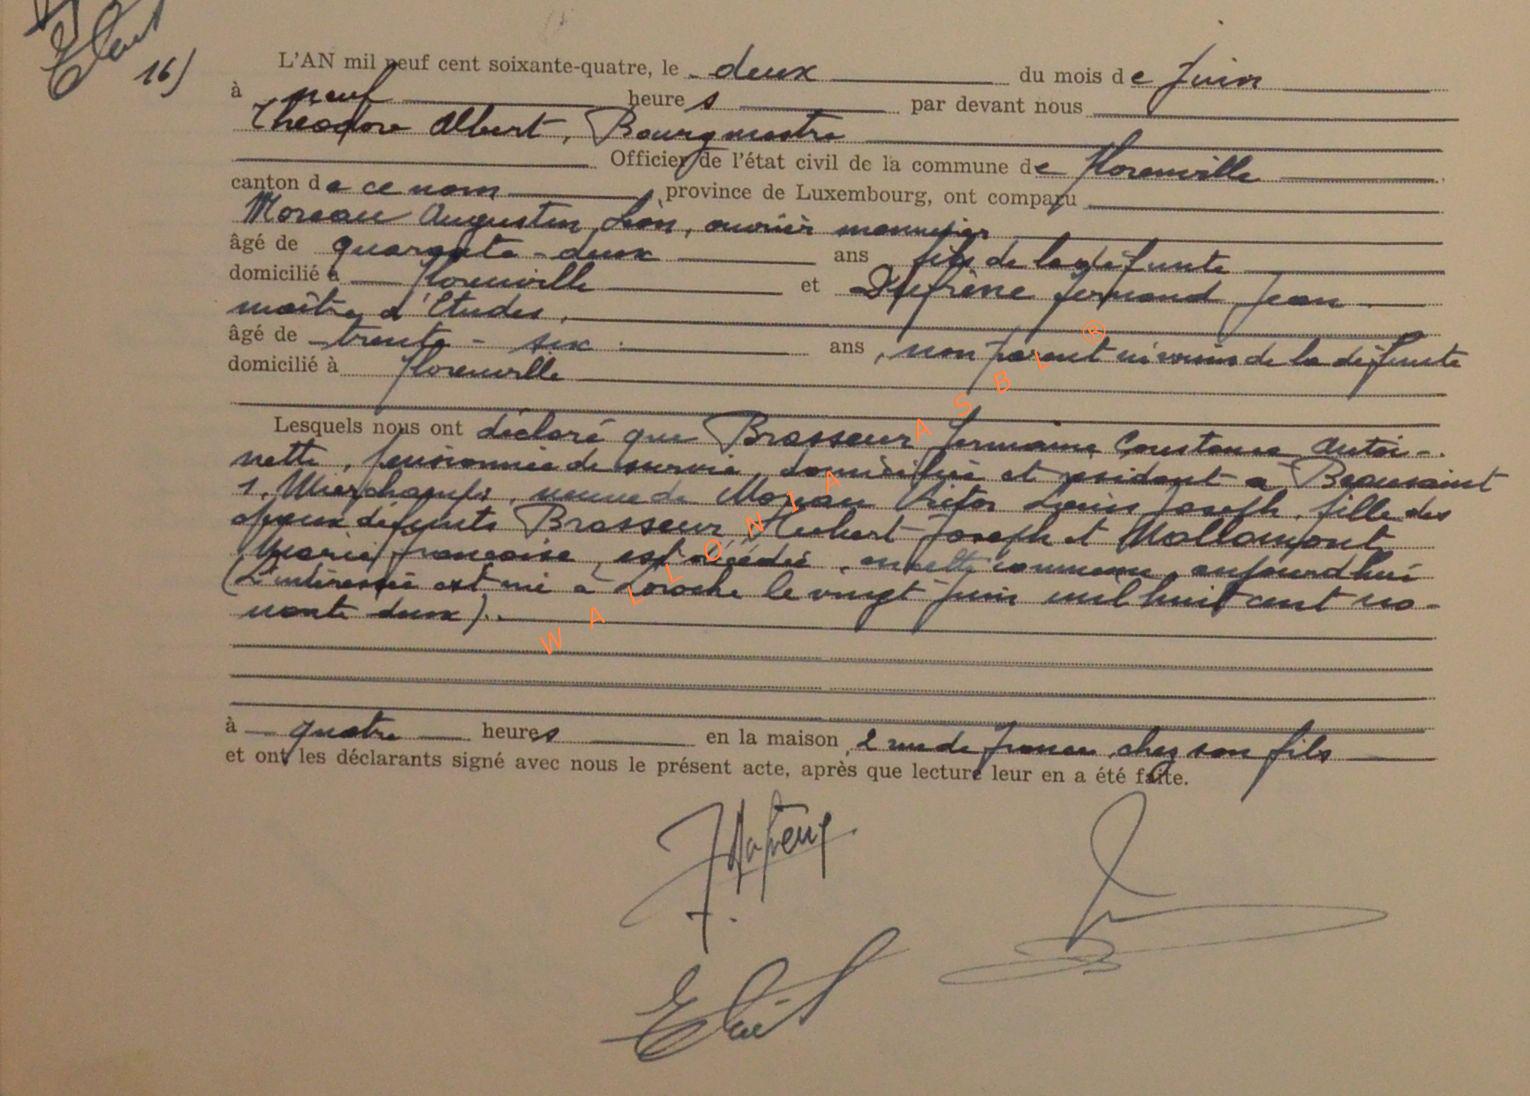 16)
L'AN mil neuf cent soixante-quatre, le deux du mois de Juin
à neuf heures par devant nous
Théodore Albert, Bourgmestre
Officier de l'état civil de la commune de Florenville
canton de ce nom province de Luxembourg, ont comparu
Moreau Augustin Léon, ouvrier menuisier
âgé de quarante-deux ans fils de la défunte
domicilié à Florenville et Dufrène Fernand Jean
maître d'Etudes,
âgé de trente-six ans, non parent ni voisin de la défunte
domicilié à Florenville
Lesquels nous ont déclaré que Brasseur Germaine Constance Antoi-
nette, pensionnée de survie, domiciliée et résidant à Beausaint
1, Mierchamps, veuve de Moreau Victor Louis Joseph, fille des
époux défunts Brasseur, Hubert Joseph et Mallamont
Marie françoise, est décédée, en cette commune, aujourdhui
(L'intéressée est née à Laroche le vingt Juin mil huit cent no-
nante deux).
à quatre heures en la maison 2 rue de france chez son fils
et ont les déclarants signé avec nous le présent acte, après que lecture leur en a été faite.
WALLONIA ASBL ®